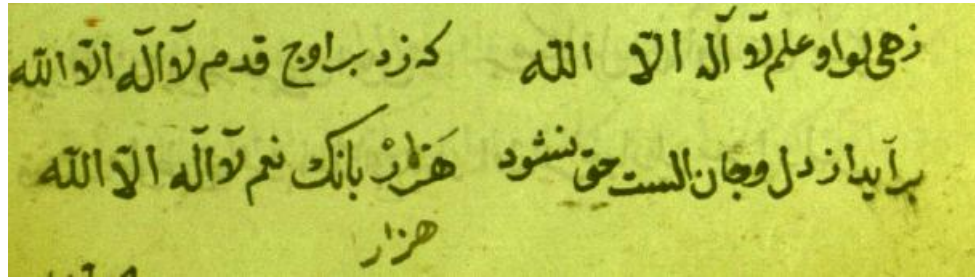 زهی لوا و علم لا اله الا الله که زد بر اوج قدم لا اله الا الله
برآید از دل و جان الست حق بشنود هزار بانک نعم لا اله الا الله
هزار